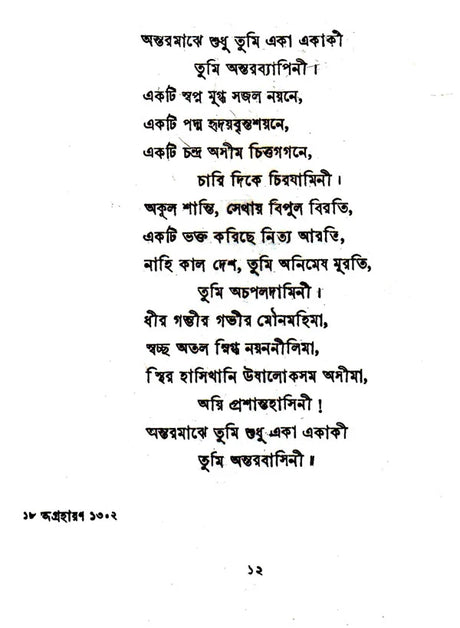 অন্তরমাঝে শুধু তুমি একা একাকী
তুমি অন্তরব্যাপিনী।
একটি স্বপ্ন মুগ্ধ সজল নয়নে,
একটি পদ্ম হৃদয়বৃন্তশয়নে,
একটি চন্দ্র অসীম চিত্তগগনে,
চারি দিকে চিরযামিনী।
অকূল শান্তি, সেথায় বিপুল বিরতি,
একটি ভক্ত করিছে নিত্য আরতি,
নাহি কাল দেশ, তুমি অনিমেষ মূরতি,
তুমি অচপলদামিনী।
ধীর গম্ভীর গভীর মৌনমহিমা,
স্বচ্ছ অতল স্নিগ্ধ নয়ননীলিমা,
স্থির হাসিখানি উষালোকসম অসীমা,
অয়ি প্রশান্তহাসিনী!
অন্তরমাঝে তুমি শুধু একা একাকী
তুমি অন্তরবাসিনী॥
১৮ অগ্রহায়ণ ১৩০২
১২